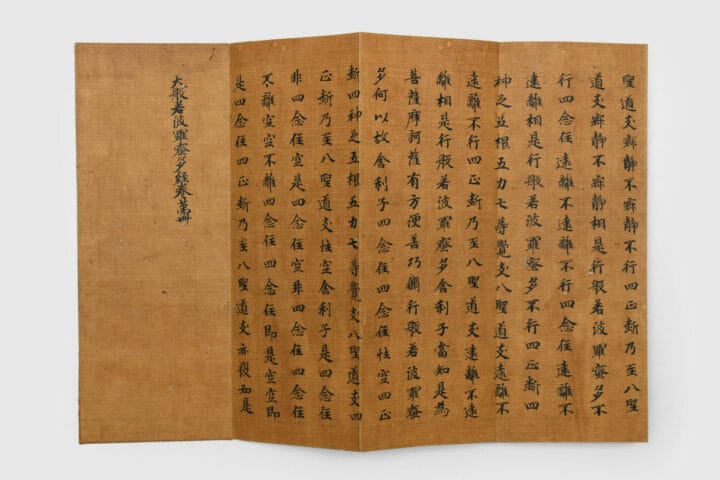 聖道支寂静不寂静不行四正断乃至八聖
道支寂静不寂静相是行般若波羅蜜多不
行四念住遠離不遠離不行四念住遠離不
遠離相是行般若波羅蜜多不行四正断四
神足五根五力七等覺支八聖道支遠離不
遠離不行四正断乃至八聖道支遠離不遠
離相是行般若波羅蜜多舍利子當知是為
菩薩摩訶薩有方便善巧脩行般若波羅蜜
多何以故舍利子四念住四念住性空四正
断四神足五根五力七等覺支八聖道支四
正断乃至八聖道支性空舍利子是四念住
非四念住空是四念住空非四念住四念住
不離空空不離四念住四念住即是空空即
是四念住四正断乃至八聖道支亦復如是
大般若波羅蜜多経巻苐卌